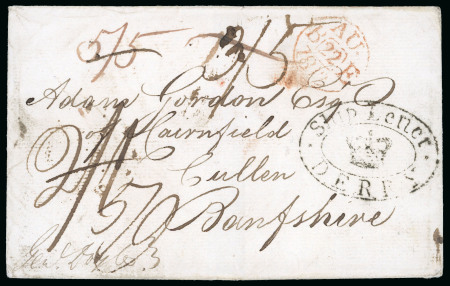 5/5
3/5
AU
B 22 E
Adam Gordon Esqr
of Cairnfield
Cullen
Banfshire
Ship Letter
DERRY